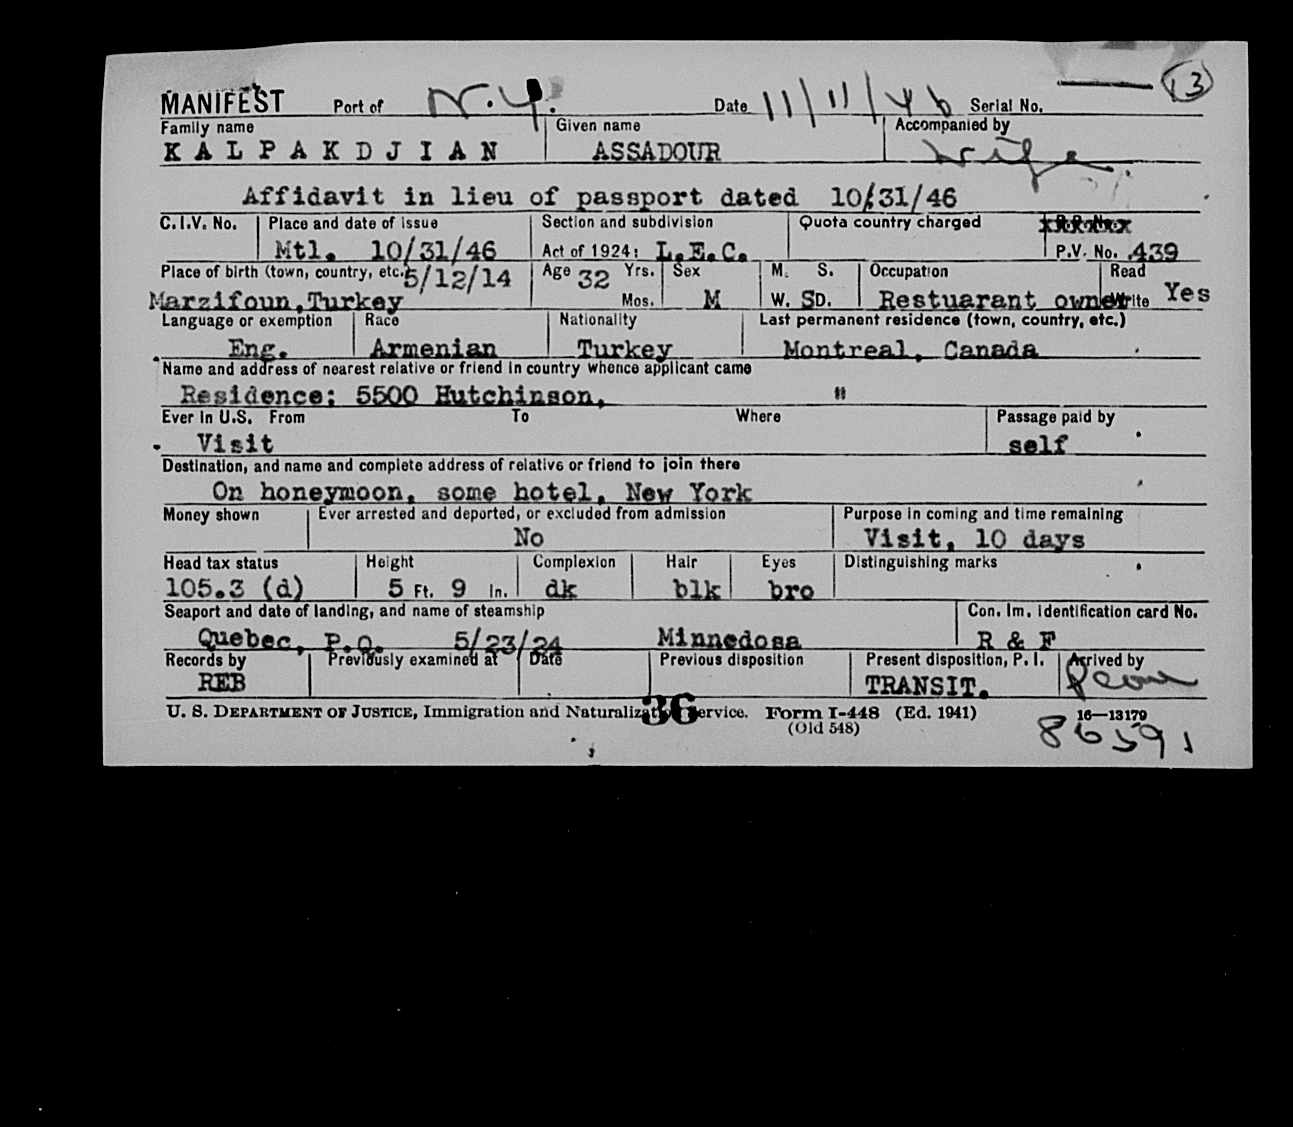 13
MANIFEST Port of N.Y. Date 11/11/46 Serial No.
Family name Given name Accompanied by
KALPAKDJIAN ASSADOUR wife
Affidavit in lieu of passport dated 10/31/46
C.I.V. No. Place and date of issue Section and subdivision Quota country charged
Mtl. 10/31/46 Act of 1924: L.E.C. P.V. No. 439
Place of birth (town, country, etc.) 5/12/14 Age 32 Yrs. Sex M. S. Occupation Read
Marzifoun,Turkey Mos. M W. SD. Restuarant owner Write Yes
Language or exemption Race Nationality Last permanent residence (town, country, etc.)
Eng. Armenian Turkey Montreal, Canada
Name and address of nearest relative or friend in country whence applicant came
Residence: 5500 Hutchinson, "
Ever in U.S. From To Where Passage paid by
Visit self
Destination, and name and complete address of relative or friend to join there
On honeymoon, some hotel, New York
Money shown Ever arrested and deported, or excluded from admission Purpose in coming and time remaining
No Visit, 10 days
Head tax status Height Complexion Hair Eyes Distinguishing marks
105.3 (d) 5 Ft. 9 In. dk blk bro
Seaport and date of landing, and name of steamship Con. Im. Identification card No.
Quebec, P.Q. 5/23/24 Minnedosa R & F
Records by Previously examined at Date Previous disposition Present disposition, P. I. Arrived by
REB TRANSIT.
U. S. DEPARTMENT OF JUSTICE, Immigration and Naturalization Service. Form I-448 (Ed. 1941) 16—13179
36
(Old 548)
86591